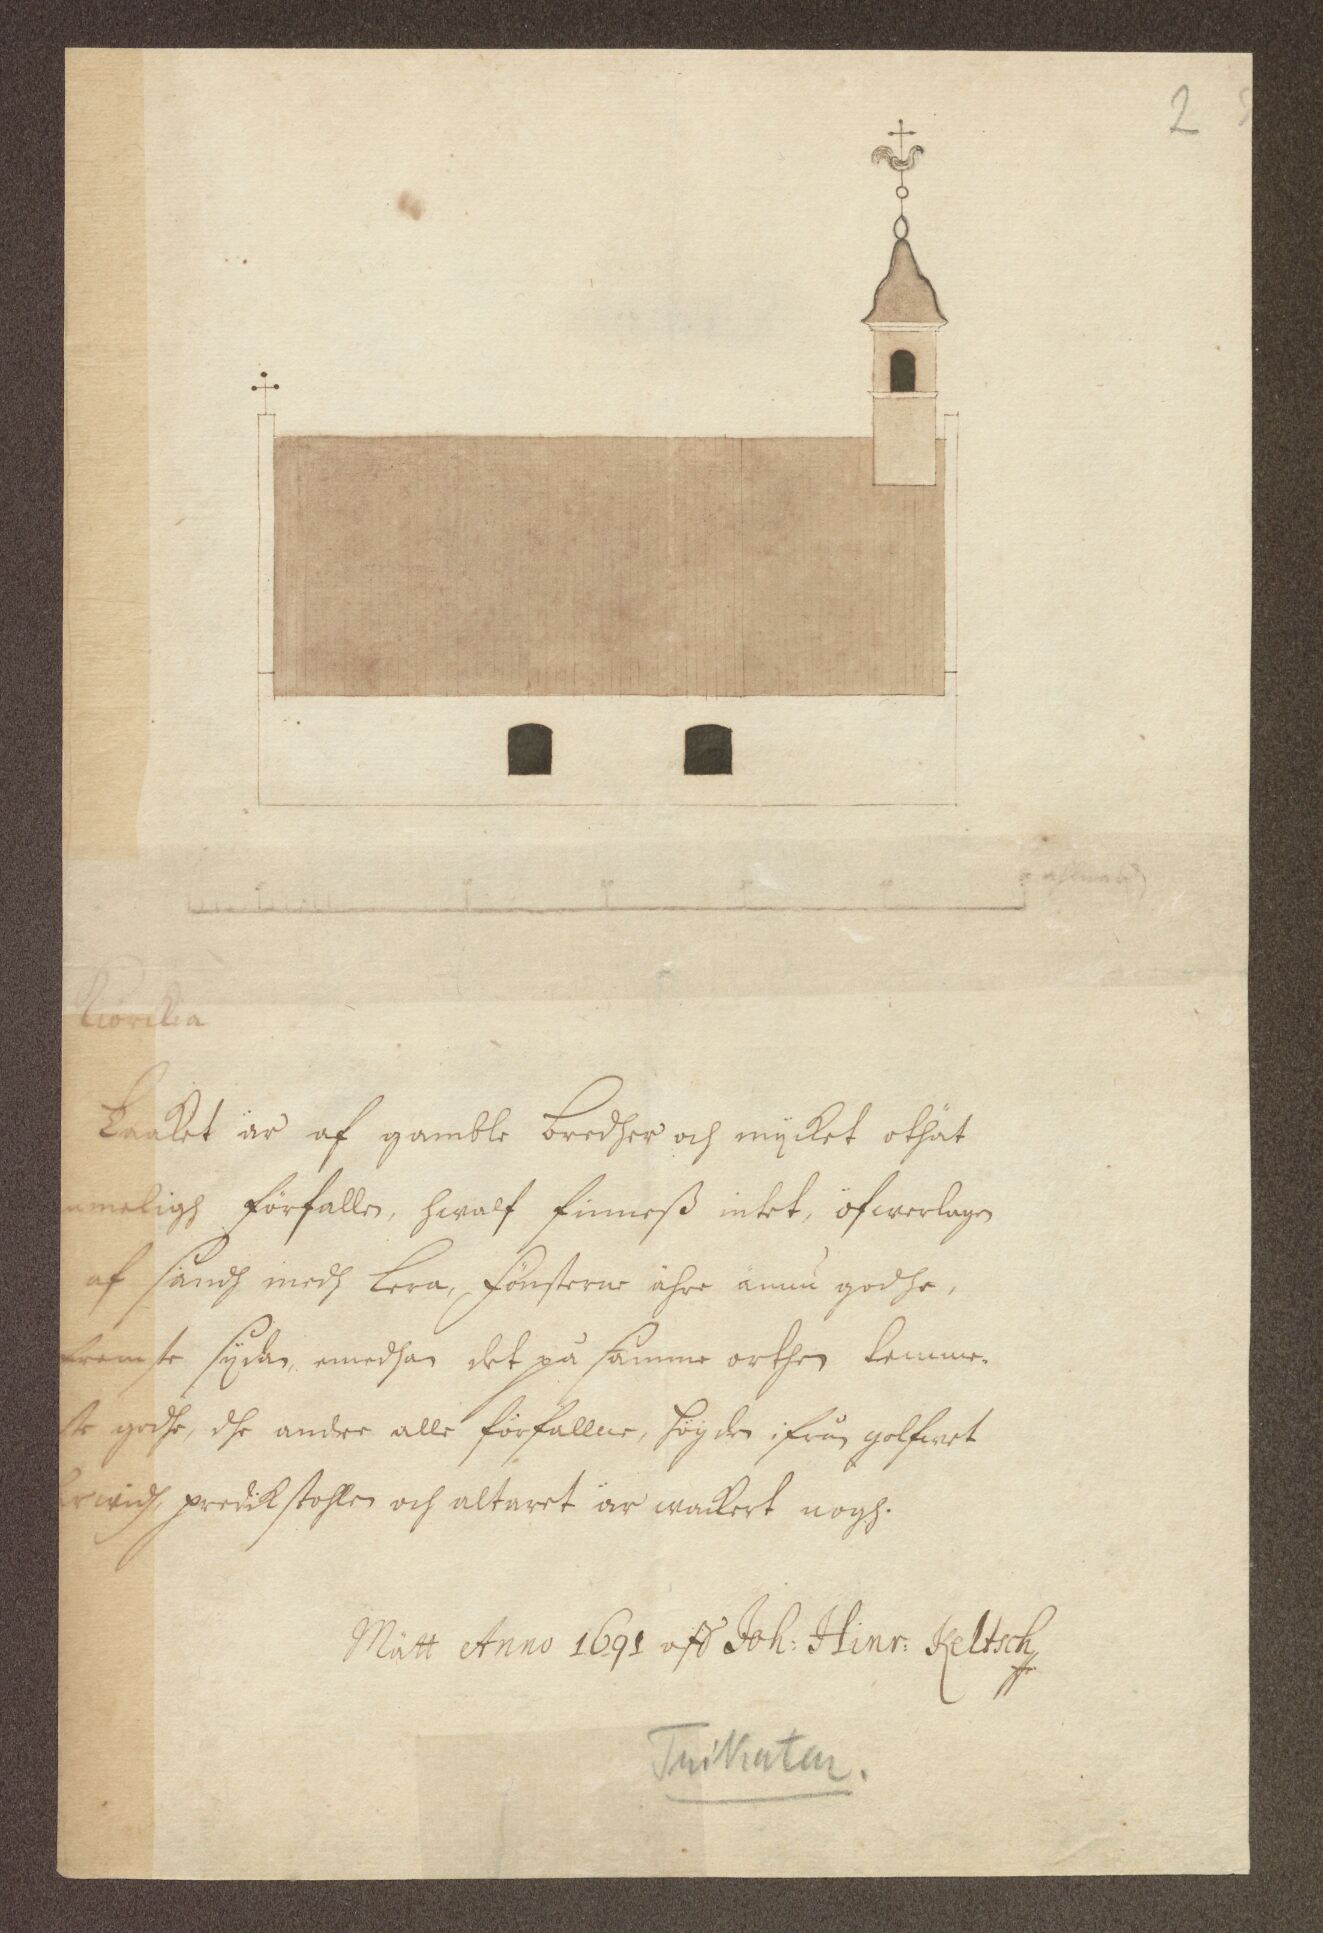 2
Kiörckia
Taaket är af gamble bredher och mÿcket othät
förfallen, hwalf finneß intet, öfwerlagen
af sandh medh lera, fönsterne ähre ännu godhe,
sÿdan, emedhan det på samme orthen
godhe, dhe andre alle förfallne, högden ifrån golfwet
predikstohlen och altaret är wackert nogh.
Mätt Anno 1691 aff Joh: Hinr: Keltsch
Trikaten.